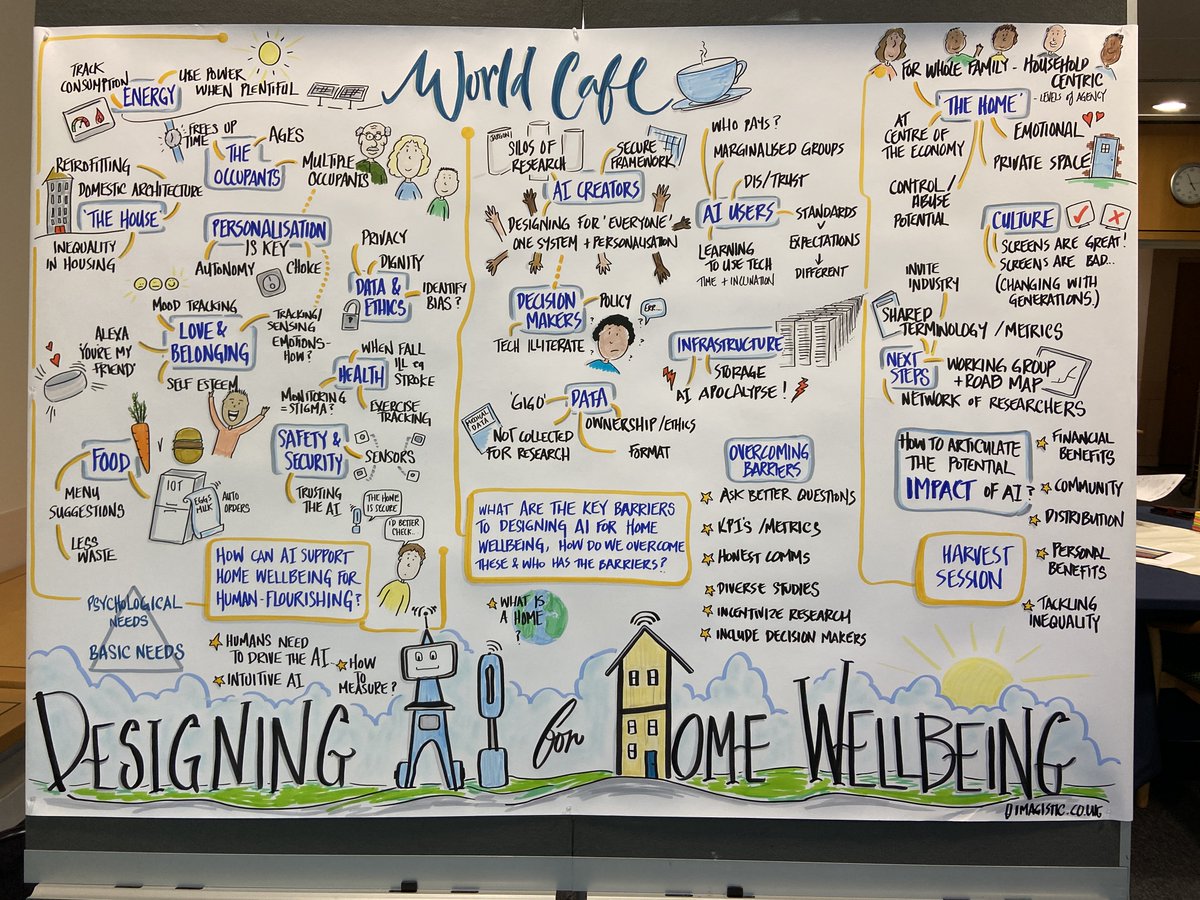 World Cafe
TRACK
CONSUMPTION
ENERGY
USE POWER
WHEN PLENTIFUL
FREES UP
TIME
AGES
THE
OCCUPANTS
MULTIPLE
OCCUPANTS
RETROFITTING
DOMESTIC ARCHITECTURE
'THE HOUSE'
INEQUALITY
IN HOUSING
PERSONALISATION
IS KEY
AUTONOMY
CHOKE
PRIVACY
DIGNITY
DATA &
ETHICS
IDENTIFY
BIAS?
MOOD TRACKING
LOVE &
BELONGING
TRACKING/
SENSING
EMOTIONS-
HOW?
ALEXA
YOU'RE MY
FRIEND'
SELF ESTEEM
WHEN FALL
ILL eg
STROKE
HEALTH
MONITORING
= STIGMA?
EXERCISE
TRACKING
FOOD
V
MENU
SUGGESTIONS
LESS
WASTE
IOT
EGGS
MILK
AUTO
ORDERS
SAFETY &
SECURITY
SENSORS
TRUSTING
THE AI
THE HOME
IS SECURE
I'D BETTER
CHECK..
HOW CAN AI SUPPORT
HOME WELLBEING FOR
HUMAN-FLOURISHING?
PSYCHOLOGICAL
NEEDS
BASIC NEEDS
HUMANS NEED
TO DRIVE THE AI
INTUITIVE AI
HOW
TO
MEASURE?
JARGON
SILOS OF
RESEARCH
SECURE
FRAMEWORK
AI CREATORS
DESIGNING FOR 'EVERYONE'
ONE SYSTEM + PERSONALISATION
WHO PAYS?
MARGINALISED GROUPS
DIS/TRUST
AI USERS
STANDARDS
EXPECTATIONS
DIFFERENT
LEARNING
TO USE TECH
TIME + INCLINATION
DECISION
MAKERS
POLICY
TECH ILLITERATE
ERR...
INFRASTRUCTURE
STORAGE
AI APOCALYPSE!
'GIGO'
DATA
MEDICAL
DATA
NOT COLLECTED
FOR RESEARCH
OWNERSHIP/ETHICS
FORMAT
WHAT ARE THE KEY BARRIERS
TO DESIGNING AI FOR HOME
WELLBEING, HOW DO WE OVERCOME
THESE & WHO HAS THE BARRIERS?
WHAT IS
A HOME
?
OVERCOMING
BARRIERS
ASK BETTER QUESTIONS
KPI'S/METRICS
HONEST COMMS
DIVERSE STUDIES
INCENTIVIZE RESEARCH
INCLUDE DECISION MAKERS
FOR WHOLE FAMILY - HOUSEHOLD
CENTRIC
- LEVELS of AGENCY
'THE HOME'
AT
CENTRE OF
THE ECONOMY
EMOTIONAL
PRIVATE SPACE
CONTROL/
ABUSE
POTENTIAL
CULTURE
SCREENS ARE GREAT!
SCREENS ARE BAD...
(CHANGING WITH
GENERATIONS.)
INVITE
INDUSTRY
SHARED
TERMINOLOGY/METRICS
NEXT
STEPS
WORKING GROUP
+ ROAD MAP
NETWORK OF RESEARCHERS
HOW TO ARTICULATE
THE POTENTIAL
IMPACT OF AI?
FINANCIAL
BENEFITS
COMMUNITY
DISTRIBUTION
PERSONAL
BENEFITS
TACKLING
INEQUALITY
HARVEST
SESSION
DESIGNING for HOME WELLBEING
IMAGISTIC.CO.UK